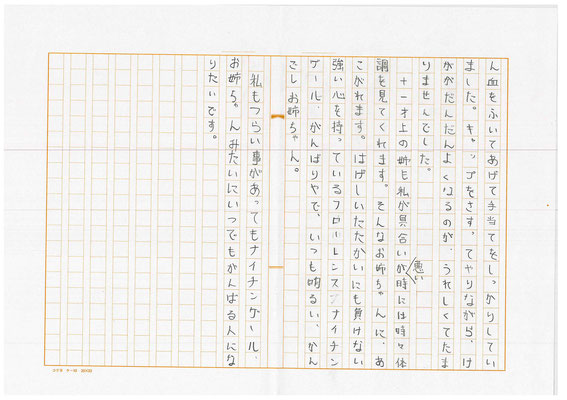 ん血をふいてあげて手当てをしっかりしてい
ました。キャップをさす。てやりながら、け
ががだんだんよくなるのが、うれしくてたま
りませんでした。
十一才上の姉も私が具合いが悪い時には時々体
調を見てくれます。そんなお姉ちゃんに、あ
こがれます。はげしいたたかいにも負けない
強い心を持っているフローレンス・ナイチン
ゲール、がんばりやで、いつも明るい、かん
ごしお姉ちゃん。
私もつらい事があってもナイチンゲール、
お姉ちゃんみたいにいつでもがんばる人にな
りたいです。